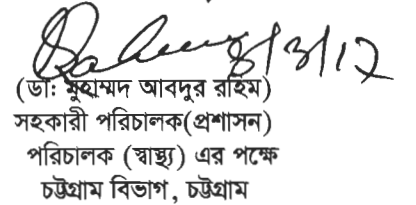 8/3/17
(ডাঃ মুহাম্মদ আবদুর রহিম)
সহকারী পরিচালক(প্রশাসন)
পরিচালক (স্বাস্থ্য) এর পক্ষে
চট্টগ্রাম বিভাগ, চট্টগ্রাম